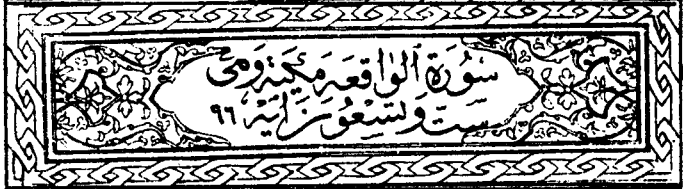 سُورَة الوَاقِعَة مَكِّيَّة وَهِيَ
سِتّ وَتِسْعُونَ اٰيَة ٩٦